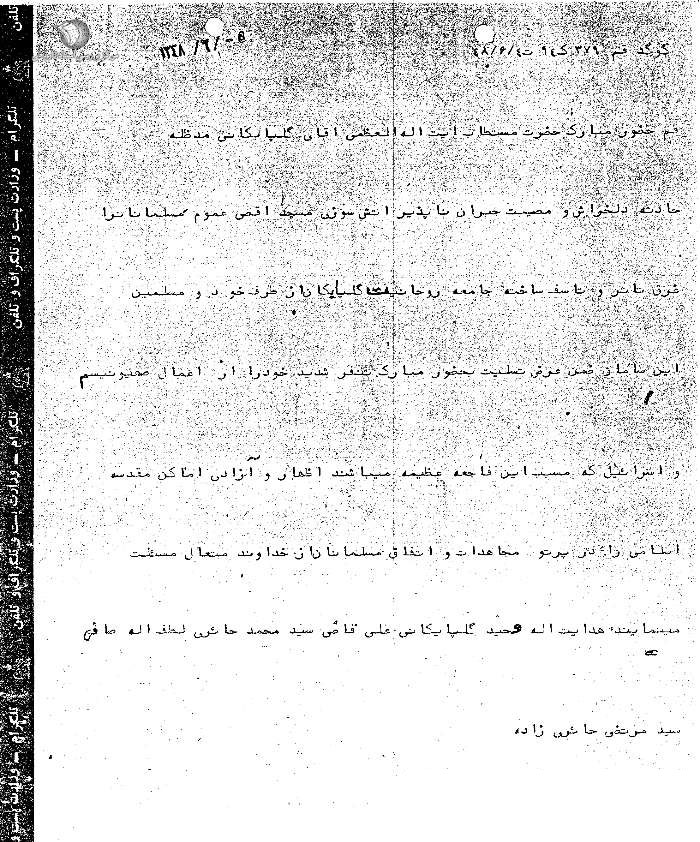 ۱۳۴۸/۶/-۵
گوگد قم ۳۷۹ ک ۹۴ ت ۴۸/۶/۴
قم حضور مبارک حضرت مستطاب ایت اله العظمی اقای گلپایگانی مدظله
حادثه دلخراش و مصیبت جبران ناپذیر اتش سوزی مسجد اقصی عموم مسلمانانرا
غرق تاثر و تاسف ساخته جامعه روحانیت گلپایگان از طرف خود و مسلمین
این سامان ضمن عرض تسلیت بحضور مبارک تنفر شدید خودرا از اعمال صهیونیسم
و اسرائیل که مسبب این فاجعه عظیمه میباشند اظهار و آزادی اماکن مقدسه
اسلامی را در پرتو مجاهدات و اتفاق مسلمانان از خداوند متعال مسئلت
مینمایند هدایت اله وحید گلپایگانی علی قاضی سید محمد حائری لطف اله صافی
سید مرتضی حائری زاده
تلگرام – وزارت پست و تلگراف و تلفن
تلگرام – وزارت پست و تلگراف و تلفن
تلگرام – وزارت پست و